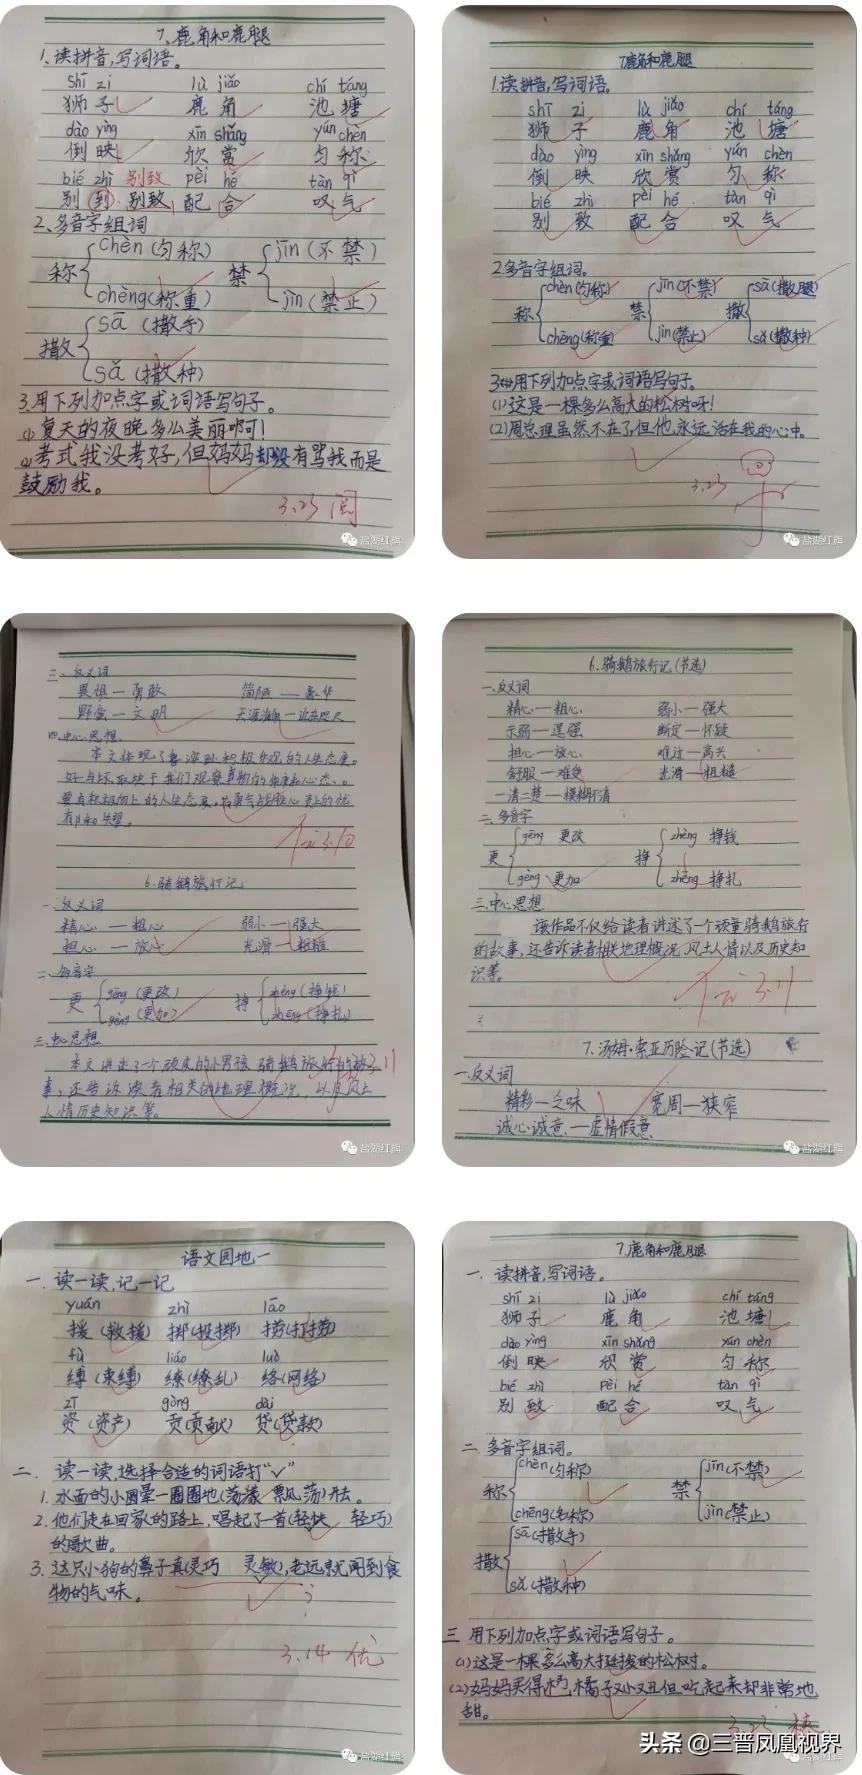 7、鹿角和鹿腿
1、读拼音,写词语。
shī zi lù jiǎo chí táng
狮子 鹿角 池塘
dào yìng xīn shǎng yún chèn
倒映 欣赏 匀称
bié zhì 别致 pèi hé tàn qì
别到 别致 配合 叹气
2、多音字组词
称 chèn(匀称) 禁 jīn(不禁)
chēng(称重) jìn(禁止)
撒 sā(撒手)
sǎ(撒种)
3.用下列加点字或词语写句子。
(1)夏天的夜晚多么美丽啊!
(2)考式我没考好,但妈妈却没有骂我而是
鼓励我。
3.23 阅
盐湖红旗
7鹿角和鹿腿
1.读拼音,写词语。
shī zi lù jiǎo chí táng
狮子 鹿角 池塘
dào yìng xīn shǎng yún chèn
倒映 欣赏 匀称
bié zhì pèi hé tàn qì
别致 配合 叹气
2.多音字组词。
称 chèn(匀称) 禁 jīn(不禁) 撒 sā(撒腿)
chēng(称重) jìn(禁止) sǎ(撒种)
3.用下列加点字或词语写句子。
(1)这是一棵多么高大的松树呀!
(2)周总理虽然不在了,但他永远活在我的心中。
3.23
盐湖红旗
三、反义词
畏惧—勇敢 简陋—豪华
野蛮—文明 天涯海角—近在咫尺
四、中心思想
本文体现了鲁滨逊积极乐观的人生态度。
好与坏取决于我们观察事物的角度和心态、
6.骑鹅旅行记
一、反义词
精心—粗心 弱小—强大
担心—放心 光滑—粗糙
二、多音字
更 gēng(更改) 挣 zhèng(挣钱)
gèng(更加) zhēng(挣扎)
三、中心思想
本文讲述了一个顽皮的小男孩骑鹅旅行的故
事,还告诉读者相关的地理概况,以及风土
人情历史知识等。
盐湖红旗
6.骑鹅旅行记(节选)
一、反义词
精心—粗心 弱小—强大
示弱—逞强 断定—怀疑
担心—放心 难过—高兴
舒服—难受 光滑—粗糙
一清二楚—模糊不清
二、多音字
更 gēng 更改 挣 zhèng 挣钱
gèng 更加 zhēng 挣扎
三、中心思想
该作品不仅给读者讲述了一个顽童骑鹅旅行
的故事,还告诉读者相关地理概况,风土人情以及历史知
识等。
7.汤姆·索亚历险记(节选)
一、反义词
精彩—乏味 宽周—狭窄
诚心诚意—虚情假意
盐湖红旗
语文园地一
一、读一读,记一记
yuán zhì lāo
援(救援) 掷(投掷) 捞(打捞)
fù liáo luò
缚(束缚) 缭(缭乱) 络(网络)
zī gòng dài
资(资产) 贡(贡献) 贷(贷款)
二、读一读,选择合适的词语打“✓”
1.水面的小圆晕一圈圈地(荡漾 飘荡)开去。
2.他们走在回家的路上,唱起了一首(轻快 轻巧)
的歌曲。
3.这只小狗的鼻子真(灵巧 灵敏),老远就闻到食
物的气味。
3.14 优
盐湖红旗
7.鹿角和鹿腿
一、读拼音,写词语。
shī zi lù jiǎo chí táng
狮子 鹿角 池塘
dào yìng xīn shǎng yún chèn
倒映 欣赏 匀称
bié zhì pèi hé tàn qì
别致 配合 叹气
二、多音字组词。
称 chèn(匀称) 禁 jīn(不禁)
chēng(名称) jìn(禁止)
撒 sā(撒手)
sǎ(撒种)
三 用下列加点字或词语写句子。
(1)这是一棵多么高大挺拔的松树。
(2)妈妈买得 橘子又小又丑但吃起来却非常地
甜。
3.23 棒
头条 @三晋凤凰视界